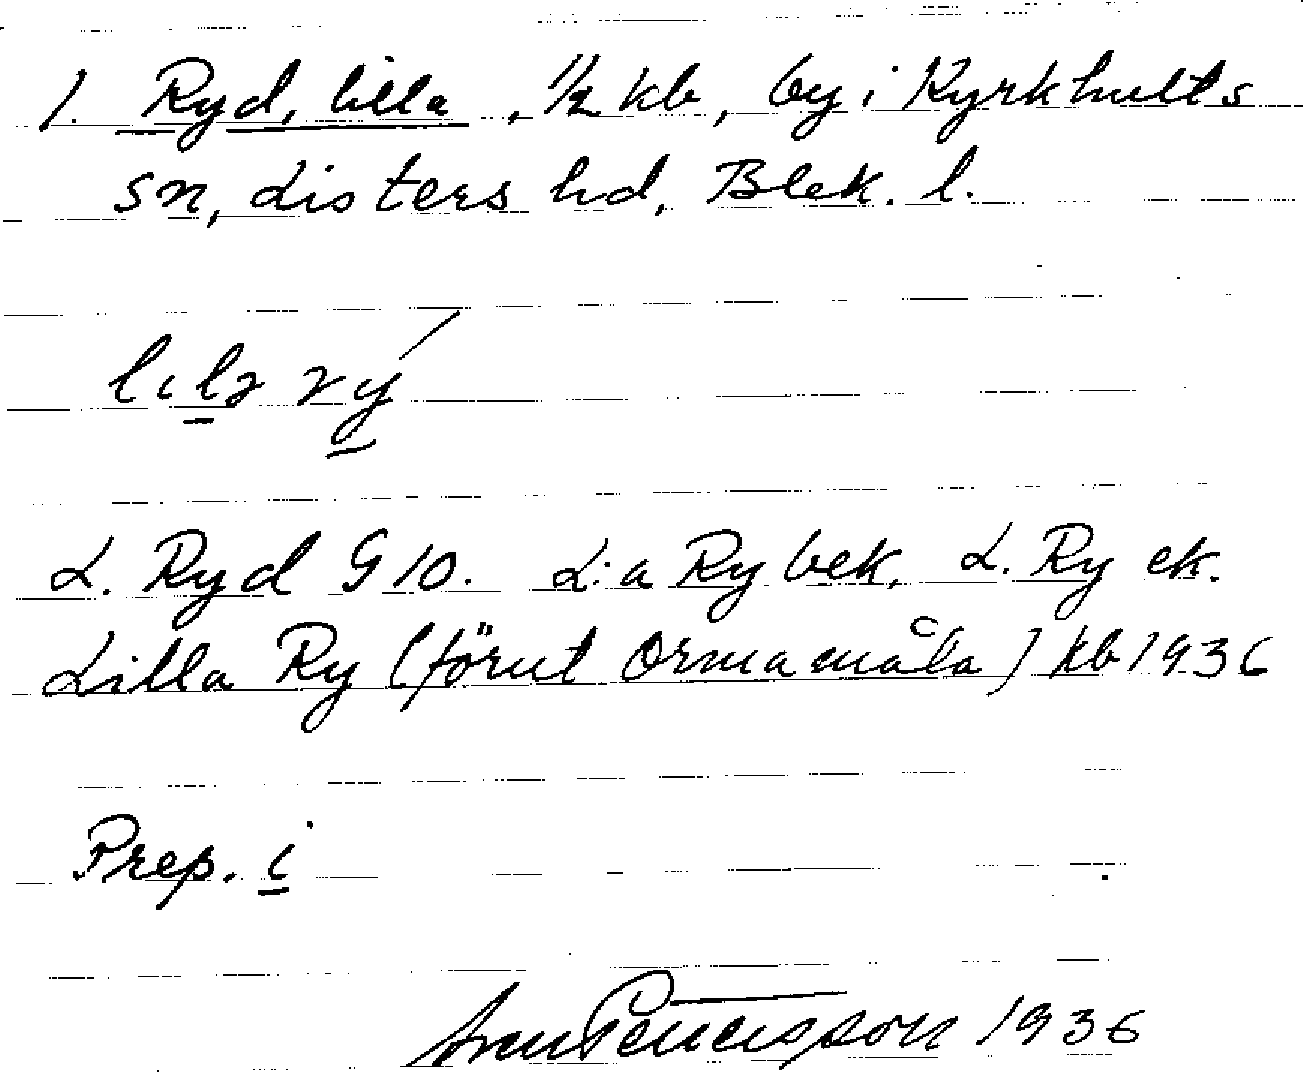 1. Ryd, lilla, 1/2 kb, by i Kyrkhults
sn, Listers hd, Blek. l.
lılə rý
L. Ryd G 10. L:a Ry bek. L. Ry ek.
Lilla Ry (förut Ormamåla) kb 1936
Prep. i
1936